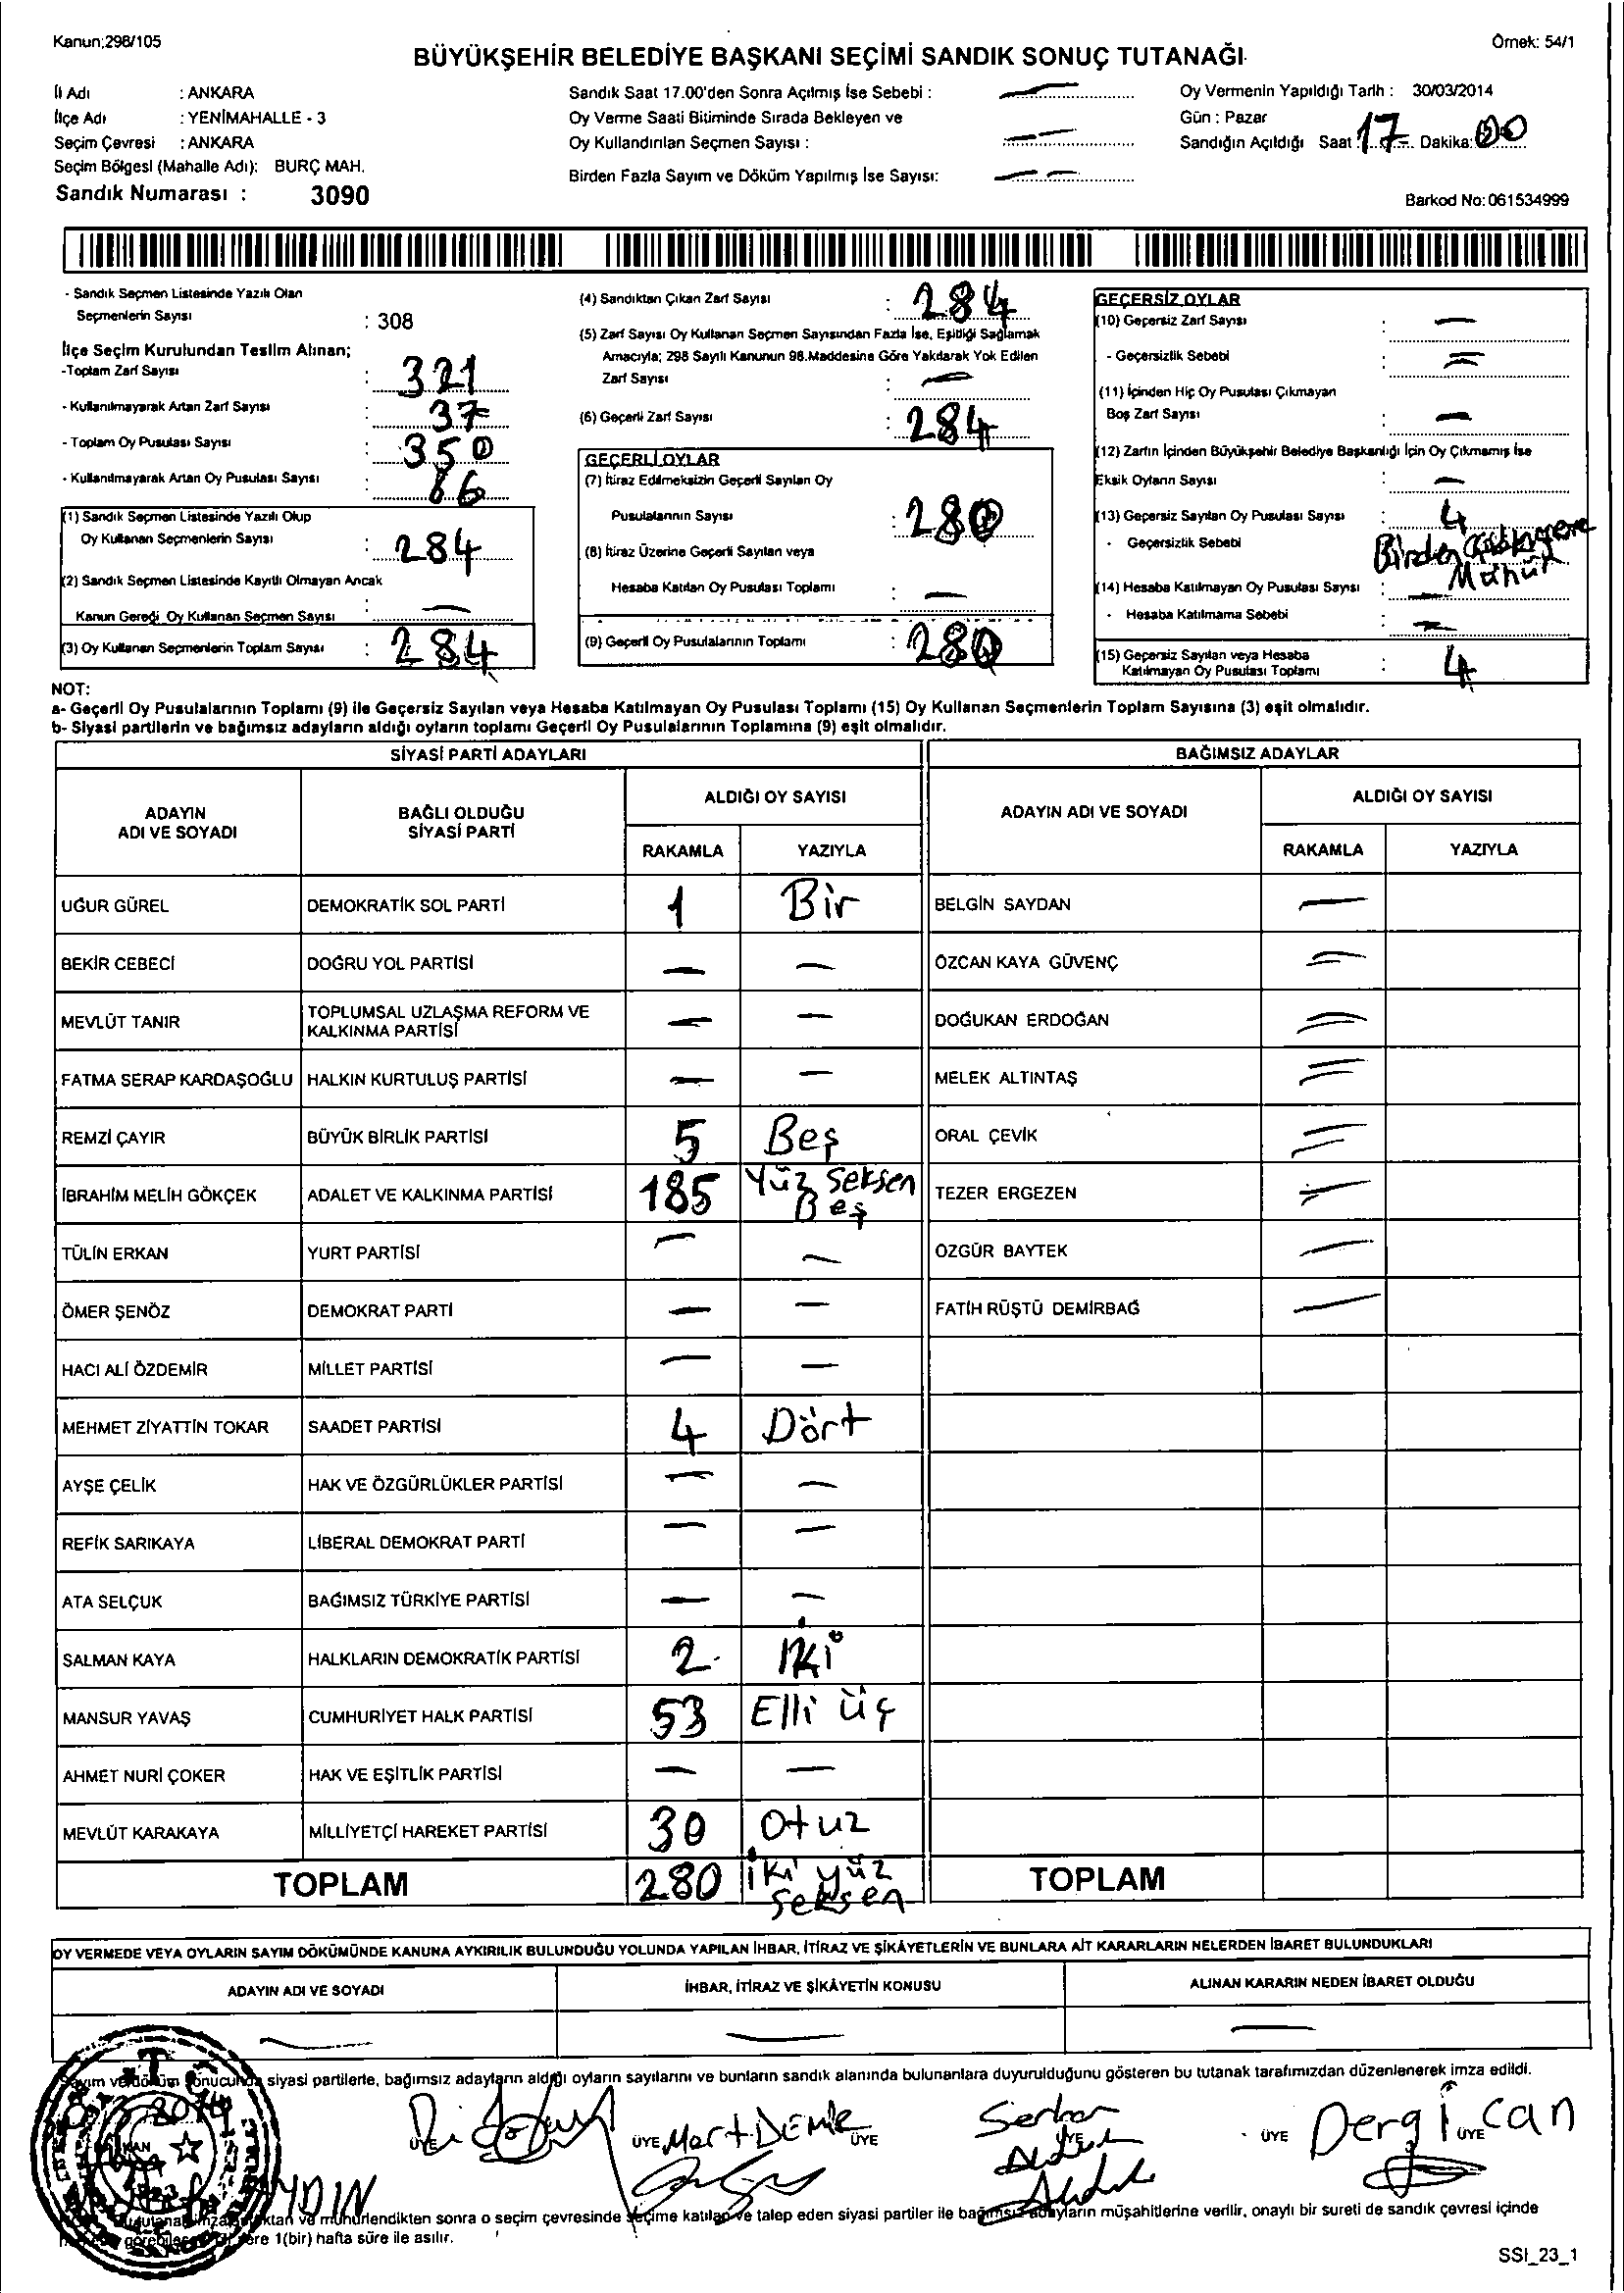 Kanun;298/105
Örnek: 54/1
BÜYÜKŞEHİR BELEDİYE BAŞKANI SEÇİMİ SANDIK SONUÇ TUTANAĞI
İl Adı : ANKARA
İlçe Adı : YENİMAHALLE - 3
Seçim Çevresi : ANKARA
Seçim Bölgesi (Mahalle Adı): BURÇ MAH.
Sandık Numarası : 3090
Sandık Saat 17.00'den Sonra Açılmış İse Sebebi : —
Oy Verme Saati Bitiminde Sırada Bekleyen ve
Oy Kullandırılan Seçmen Sayısı : —
Birden Fazla Sayım ve Döküm Yapılmış İse Sayısı: —
Oy Vermenin Yapıldığı Tarih : 30/03/2014
Gün : Pazar
Sandığın Açıldığı Saat : 17 Dakika: 00
Barkod No: 061534999
- Sandık Seçmen Listesinde Yazılı Olan
Seçmenlerin Sayısı : 308
İlçe Seçim Kurulundan Teslim Alınan;
-Toplam Zarf Sayısı : 321
- Kullanılmayarak Artan Zarf Sayısı : 37
- Toplam Oy Pusulası Sayısı : 350
- Kullanılmayarak Artan Oy Pusulası Sayısı : 66
(1) Sandık Seçmen Listesinde Yazılı Olup
Oy Kullanan Seçmenlerin Sayısı : 284
(2) Sandık Seçmen Listesinde Kayıtlı Olmayan Ancak
Kanun Gereği Oy Kullanan Seçmen Sayısı : —
(3) Oy Kullanan Seçmenlerin Toplam Sayısı : 284
(4) Sandıktan Çıkan Zarf Sayısı : 284
(5) Zarf Sayısı Oy Kullanan Seçmen Sayısından Fazla İse, Eşitliği Sağlamak
Amacıyla; 298 Sayılı Kanunun 98.Maddesine Göre Yakılarak Yok Edilen
Zarf Sayısı : —
(6) Geçerli Zarf Sayısı : 284
GEÇERLİ OYLAR
(7) İtiraz Edilmeksizin Geçerli Sayılan Oy
Pusulalarının Sayısı : 280
(8) İtiraz Üzerine Geçerli Sayılan veya
Hesaba Katılan Oy Pusulası Toplamı : —
(9) Geçerli Oy Pusulalarının Toplamı : 280
GEÇERSİZ OYLAR
(10) Geçersiz Zarf Sayısı : —
- Geçersizlik Sebebi : —
(11) İçinden Hiç Oy Pusulası Çıkmayan
Boş Zarf Sayısı : —
(12) Zarfın İçinden Büyükşehir Belediye Başkanlığı İçin Oy Çıkmamış İse
Eksik Oyların Sayısı : —
(13) Geçersiz Sayılan Oy Pusulası Sayısı : 4
- Geçersizlik Sebebi Birden
Mühür
(14) Hesaba Katılmayan Oy Pusulası Sayısı : —
- Hesaba Katılmama Sebebi : —
(15) Geçersiz Sayılan veya Hesaba
Katılmayan Oy Pusulası Toplamı : 4
NOT:
a- Geçerli Oy Pusulalarının Toplamı (9) ile Geçersiz Sayılan veya Hesaba Katılmayan Oy Pusulası Toplamı (15) Oy Kullanan Seçmenlerin Toplam Sayısına (3) eşit olmalıdır.
b- Siyasi partilerin ve bağımsız adayların aldığı oyların toplamı Geçerli Oy Pusulalarının Toplamına (9) eşit olmalıdır.
SİYASİ PARTİ ADAYLARI BAĞIMSIZ ADAYLAR
ADAYIN
ADI VE SOYADI
BAĞLI OLDUĞU
SİYASİ PARTİ
ALDIĞI OY SAYISI
RAKAMLA YAZIYLA
ADAYIN ADI VE SOYADI
ALDIĞI OY SAYISI
RAKAMLA YAZIYLA
UĞUR GÜREL DEMOKRATİK SOL PARTİ 1 Bir BELGİN SAYDAN —
BEKİR CEBECİ DOĞRU YOL PARTİSİ — — ÖZCAN KAYA GÜVENÇ —
MEVLÜT TANIR TOPLUMSAL UZLAŞMA REFORM VE
KALKINMA PARTİSİ — — DOĞUKAN ERDOĞAN —
FATMA SERAP KARDAŞOĞLU HALKIN KURTULUŞ PARTİSİ — — MELEK ALTINTAŞ —
REMZİ ÇAYIR BÜYÜK BİRLİK PARTİSİ 5 Beş ORAL ÇEVİK —
İBRAHİM MELİH GÖKÇEK ADALET VE KALKINMA PARTİSİ 185 Yüz Seksen Beş TEZER ERGEZEN —
TÜLİN ERKAN YURT PARTİSİ — — ÖZGÜR BAYTEK —
ÖMER ŞENÖZ DEMOKRAT PARTİ — — FATİH RÜŞTÜ DEMİRBAĞ —
HACI ALİ ÖZDEMİR MİLLET PARTİSİ — —
MEHMET ZİYATTİN TOKAR SAADET PARTİSİ 4 Dört
AYŞE ÇELİK HAK VE ÖZGÜRLÜKLER PARTİSİ — —
REFİK SARIKAYA LİBERAL DEMOKRAT PARTİ — —
ATA SELÇUK BAĞIMSIZ TÜRKİYE PARTİSİ — —
SALMAN KAYA HALKLARIN DEMOKRATİK PARTİSİ 2 İki
MANSUR YAVAŞ CUMHURİYET HALK PARTİSİ 53 Elli üç
AHMET NURİ ÇOKER HAK VE EŞİTLİK PARTİSİ — —
MEVLÜT KARAKAYA MİLLİYETÇİ HAREKET PARTİSİ 30 Otuz
TOPLAM 280 İki yüz seksen TOPLAM
OY VERMEDE VEYA OYLARIN SAYIM DÖKÜMÜNDE KANUNA AYKIRILIK BULUNDUĞU YOLUNDA YAPILAN İHBAR, İTİRAZ VE ŞİKÂYETLERİN VE BUNLARA AİT KARARLARIN NELERDEN İBARET BULUNDUKLARI
ADAYIN ADI VE SOYADI İHBAR, İTİRAZ VE ŞİKÂYETİN KONUSU ALINAN KARARIN NEDEN İBARET OLDUĞU
— — —
Sayım ve döküm sonucunda siyasi partilerle, bağımsız adayların aldığı oyların sayılarını ve bunların sandık alanında bulunanlara duyurulduğunu gösteren bu tutanak tarafımızdan düzenlenerek imza edildi.
T.C.
ÜYE ÜYE Mert DEMİR ÜYE Serkan ÜYE ÜYE Dergi can ÜYE
AYDIN
ve mühürlendikten sonra o seçim çevresinde seçime katılan ve talep eden siyasi partiler ile bağımsız adayların müşahitlerine verilir, onaylı bir sureti de sandık çevresi içinde
1(bir) hafta süre ile asılır.
SSI_23_1